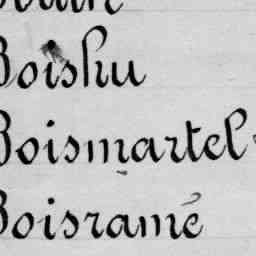 Boishu
Boismartel
Boisramé